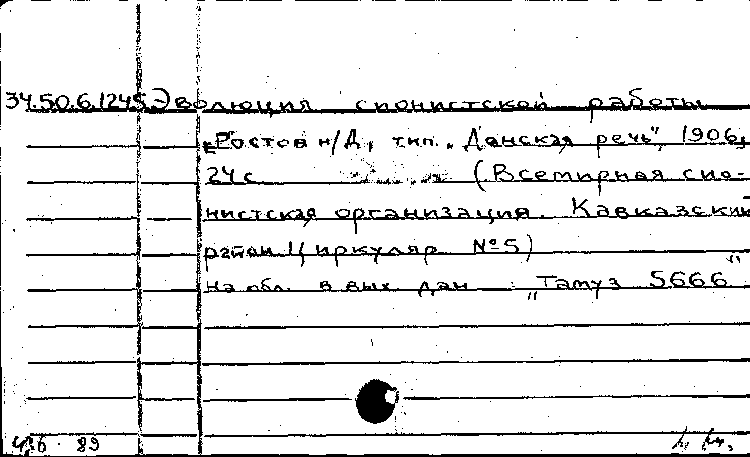 34.50.6.1245 Эволюция сионистской работы
Ростов н/Д, тип. „Донская речь", 1906,
24 с (Всемирная сио-
нистская организация. Кавказский
район. Циркуляр № 5)
На обл. вых. дан „Тамуз 5666"
89